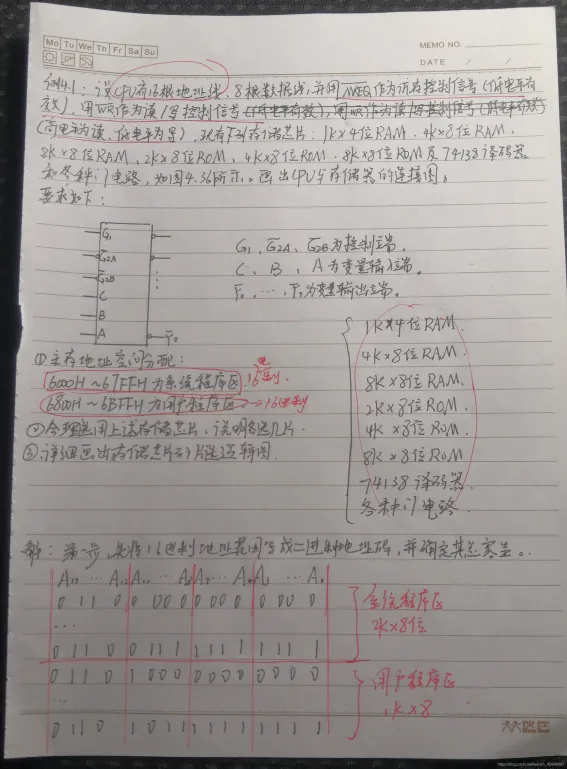 Mo Tu We Th Fr Sa Su
MEMO NO.
DATE / /
例4.1：设CPU有16根地址线，8根数据线，并用MREQ作为访存控制信号（低电平有
效），用WR作为读/写控制信号（低电平有效），用WR作为读/写控制信号（低电平有效）
（高电平为读，低电平为写），现有下列存储芯片：1K×4位RAM、4K×8位RAM、
8K×8位RAM、2K×8位ROM、4K×8位ROM、8K×8位ROM及74138译码器
和各种门电路，如图4.36所示。画出CPU与存储器的连接图。
要求如下：
G1
G2A
G2B
C
B
A
Y̅0
G1、G̅2A、G̅2B为控制端。
C、B、A为变量输入端。
Y̅0, …, Y̅7为变量输出端。
1K×4位RAM
4K×8位RAM
8K×8位RAM
2K×8位ROM
4K×8位ROM
8K×8位ROM
74138译码器
各种门电路
①主存地址空间分配：
6000H～67FFH为系统程序区 16进制
6800H～6BFFH为用户程序区 →16进制
②合理选用上述存储芯片，说明各选几片
③详细画出存储芯片的片选逻辑图。
解：第一步，先将16进制地址范围写成二进制地址码，并确定其总容量。
A15 … A12 A11 … A8 A7 … A4 A3 … A0
0 1 1 0 0 0 0 0 0 0 0 0 0 0 0 0
…
0 1 1 0 0 1 1 1 1 1 1 1 1 1 1 1
系统程序区
2K×8位
0 1 1 0 1 0 0 0 0 0 0 0 0 0 0 0
…
0 1 1 0 1 0 1 1 1 1 1 1 1 1 1 1
用户程序区
1K×8